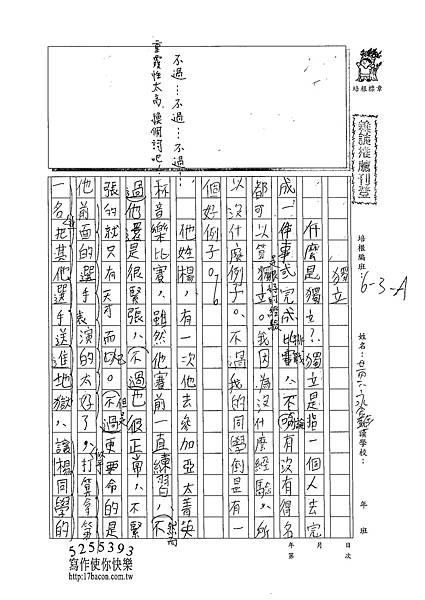 培根標章
雜誌推薦刊登
培根編班：6-3-A
姓名：
讀學校：
年 班
第 年 月 日 次
獨立
什麼是獨立？獨立是指一個人去完
成一件事或完成比賽，不論有沒有得名
都可以算獨立。我因為沒什麼經驗，所
以沒什麼例子。不過我的同學倒是有一
個好例子。
他姓楊，有一次他去參加亞太菁英
杯音樂比賽，雖然他賽前一直練習，不
過他還是很緊張，不過也很正常，不緊
張的就只有天才而已。不過更要命的是
他前面的選手表演的太好了，打算拿第
一名把其他選手送進地獄，讓楊同學的
不過…不過…不過…
重覆性太高，換個詞吧！
但是
然而
5255393
寫作使你快樂
http://17bacon.com.tw